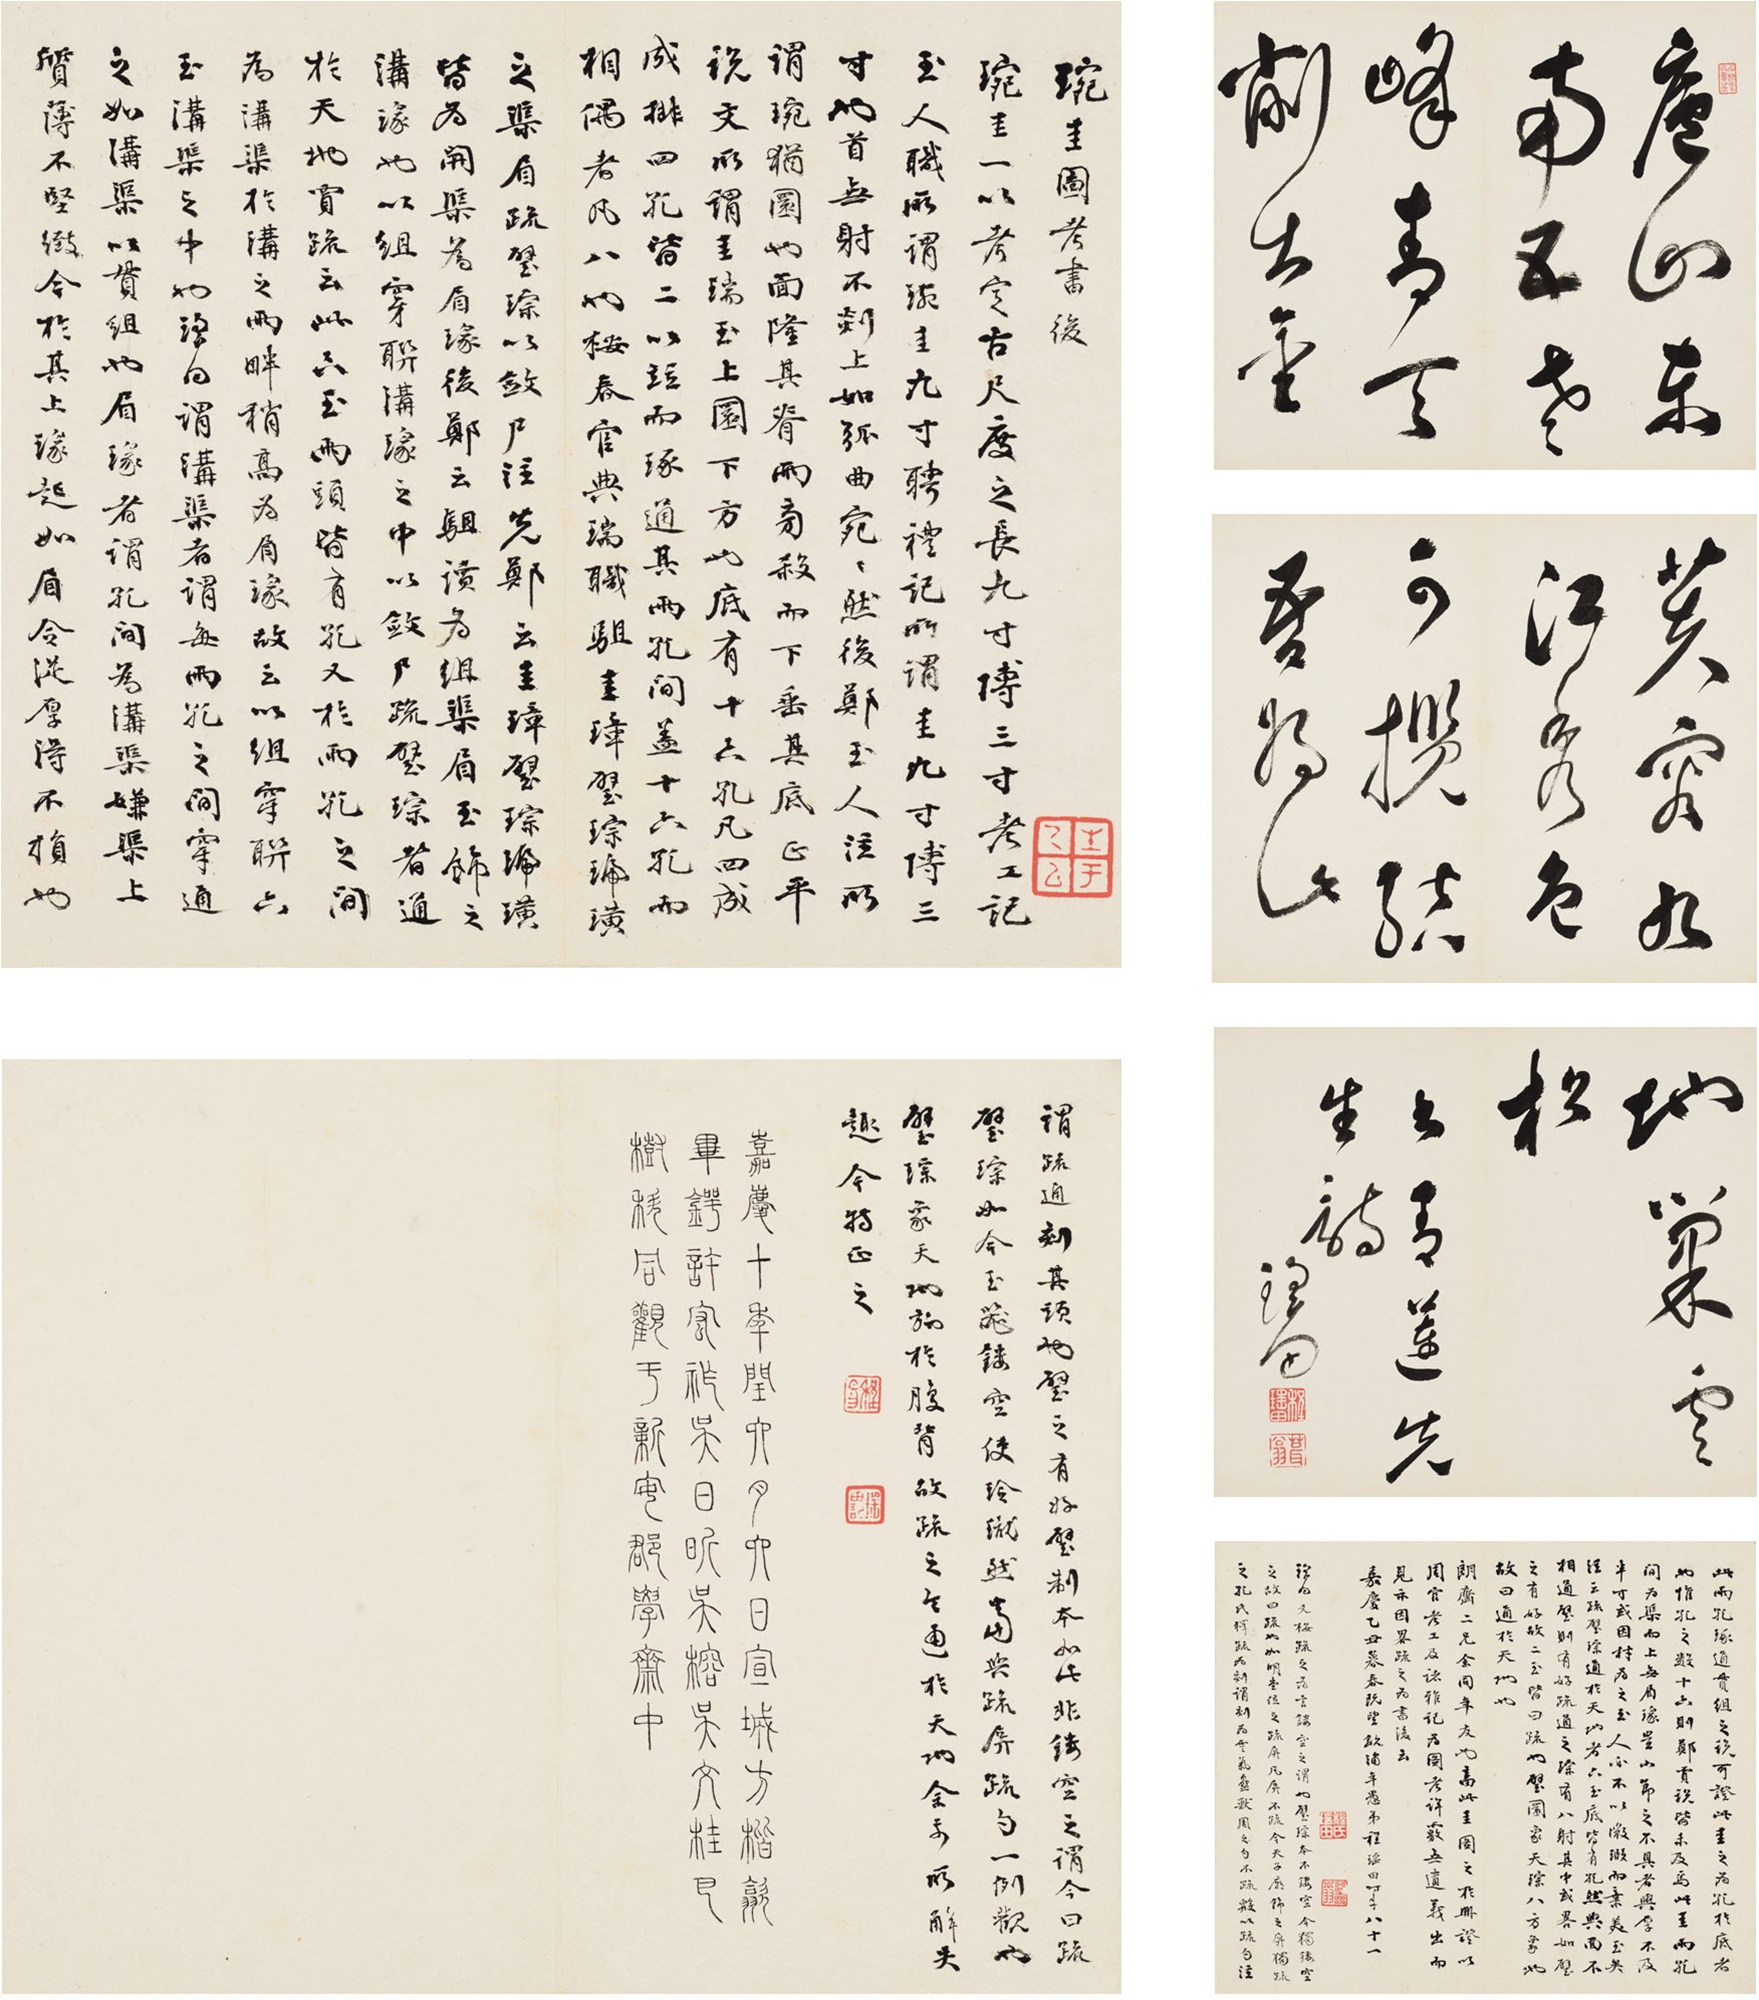 廬山東
南五老
峰青天
削出金
芙蓉九
江秀色
可攬結
吾將此
地巢雲
松
右青蓮先
生詩
瑤田
琬圭圖考書後
琬圭一以考定古尺度之長九寸博三寸考工記
玉人職所謂琬圭九寸聘禮記所謂圭九寸博三
寸也首無射不剡上如弧曲宛々然後鄭玉人注所
謂琬猶圜也面隆其脊兩旁殺而下垂其底正平
說文所謂圭瑞玉上圜下方也底有十六孔凡四成
成排四孔皆二以班而琢通其兩孔間蓋十六孔而
相偶者凡八也桉春官典瑞職駔圭璋璧琮琥璜
之渠眉疏璧琮以斂尸注先鄭云圭璋璧琮琥璜
皆為開渠為眉瑑後鄭云駔讀為組渠眉玉飾之
溝瑑也以組穿聯溝瑑之中以斂尸疏璧琮者通
於天地賈疏云此六玉兩頭皆有孔又於兩孔之間
為溝渠於溝之兩畔稍高為眉瑑故云以組穿聯六
玉溝渠之中也瑤田謂溝渠者謂每兩孔之間穿通
之如溝渠以貫組也眉瑑者謂孔間為溝渠嫌渠上
質薄不堅緻令於其上瑑起如眉令泥厚得不損也
此兩孔琢通貫組之說可證此圭之為孔於底者
也惟孔之數十六則鄭賈說皆未及焉此圭兩孔
間為渠而上無眉瑑豈小節之不具者與厚不及
半寸或因材為之玉人亦不以微瑕而棄美玉矣
注云疏璧琮通於天地者六玉底皆有孔然與面不
相通璧則有好疏通之琮有八射其中或畧如璧
之有好故二玉皆曰疏也璧圜象天琮八方象地
故曰通於天地也
朗齋二兄余同年友也高此圭圖之於冊證以
周官考工及諸雜記為圖考詳覈無遺義出而
見示因畧疏之為書後云
嘉慶乙丑暮春既望歙浦年愚弟程瑤田時年八十一
瑤田又桉疏之為言鏤空之謂也璧琮本不鏤空今獨鏤空
之故曰疏也如明堂位之疏屏凡屏不疏今天子廟飾之屏獨疏
之孔氏釋疏為刻謂刻為雲氣蟲獸周之勺不疏以疏勺注
謂疏通刻其頭也璧之有好璧制本如此非鏤空之謂今曰疏
璧琮如今玉器鏤空使玲瓏然當與疏屏疏勺一例觀也
璧琮象天地施於腹背故疏之令通於天地余前所解失
趣今特正之
嘉慶十年閏六月六日宣城方楷歙
畢鍔許宏祚吳日昕吳榕吳文桂巴
樹同觀于新安郡學齋中